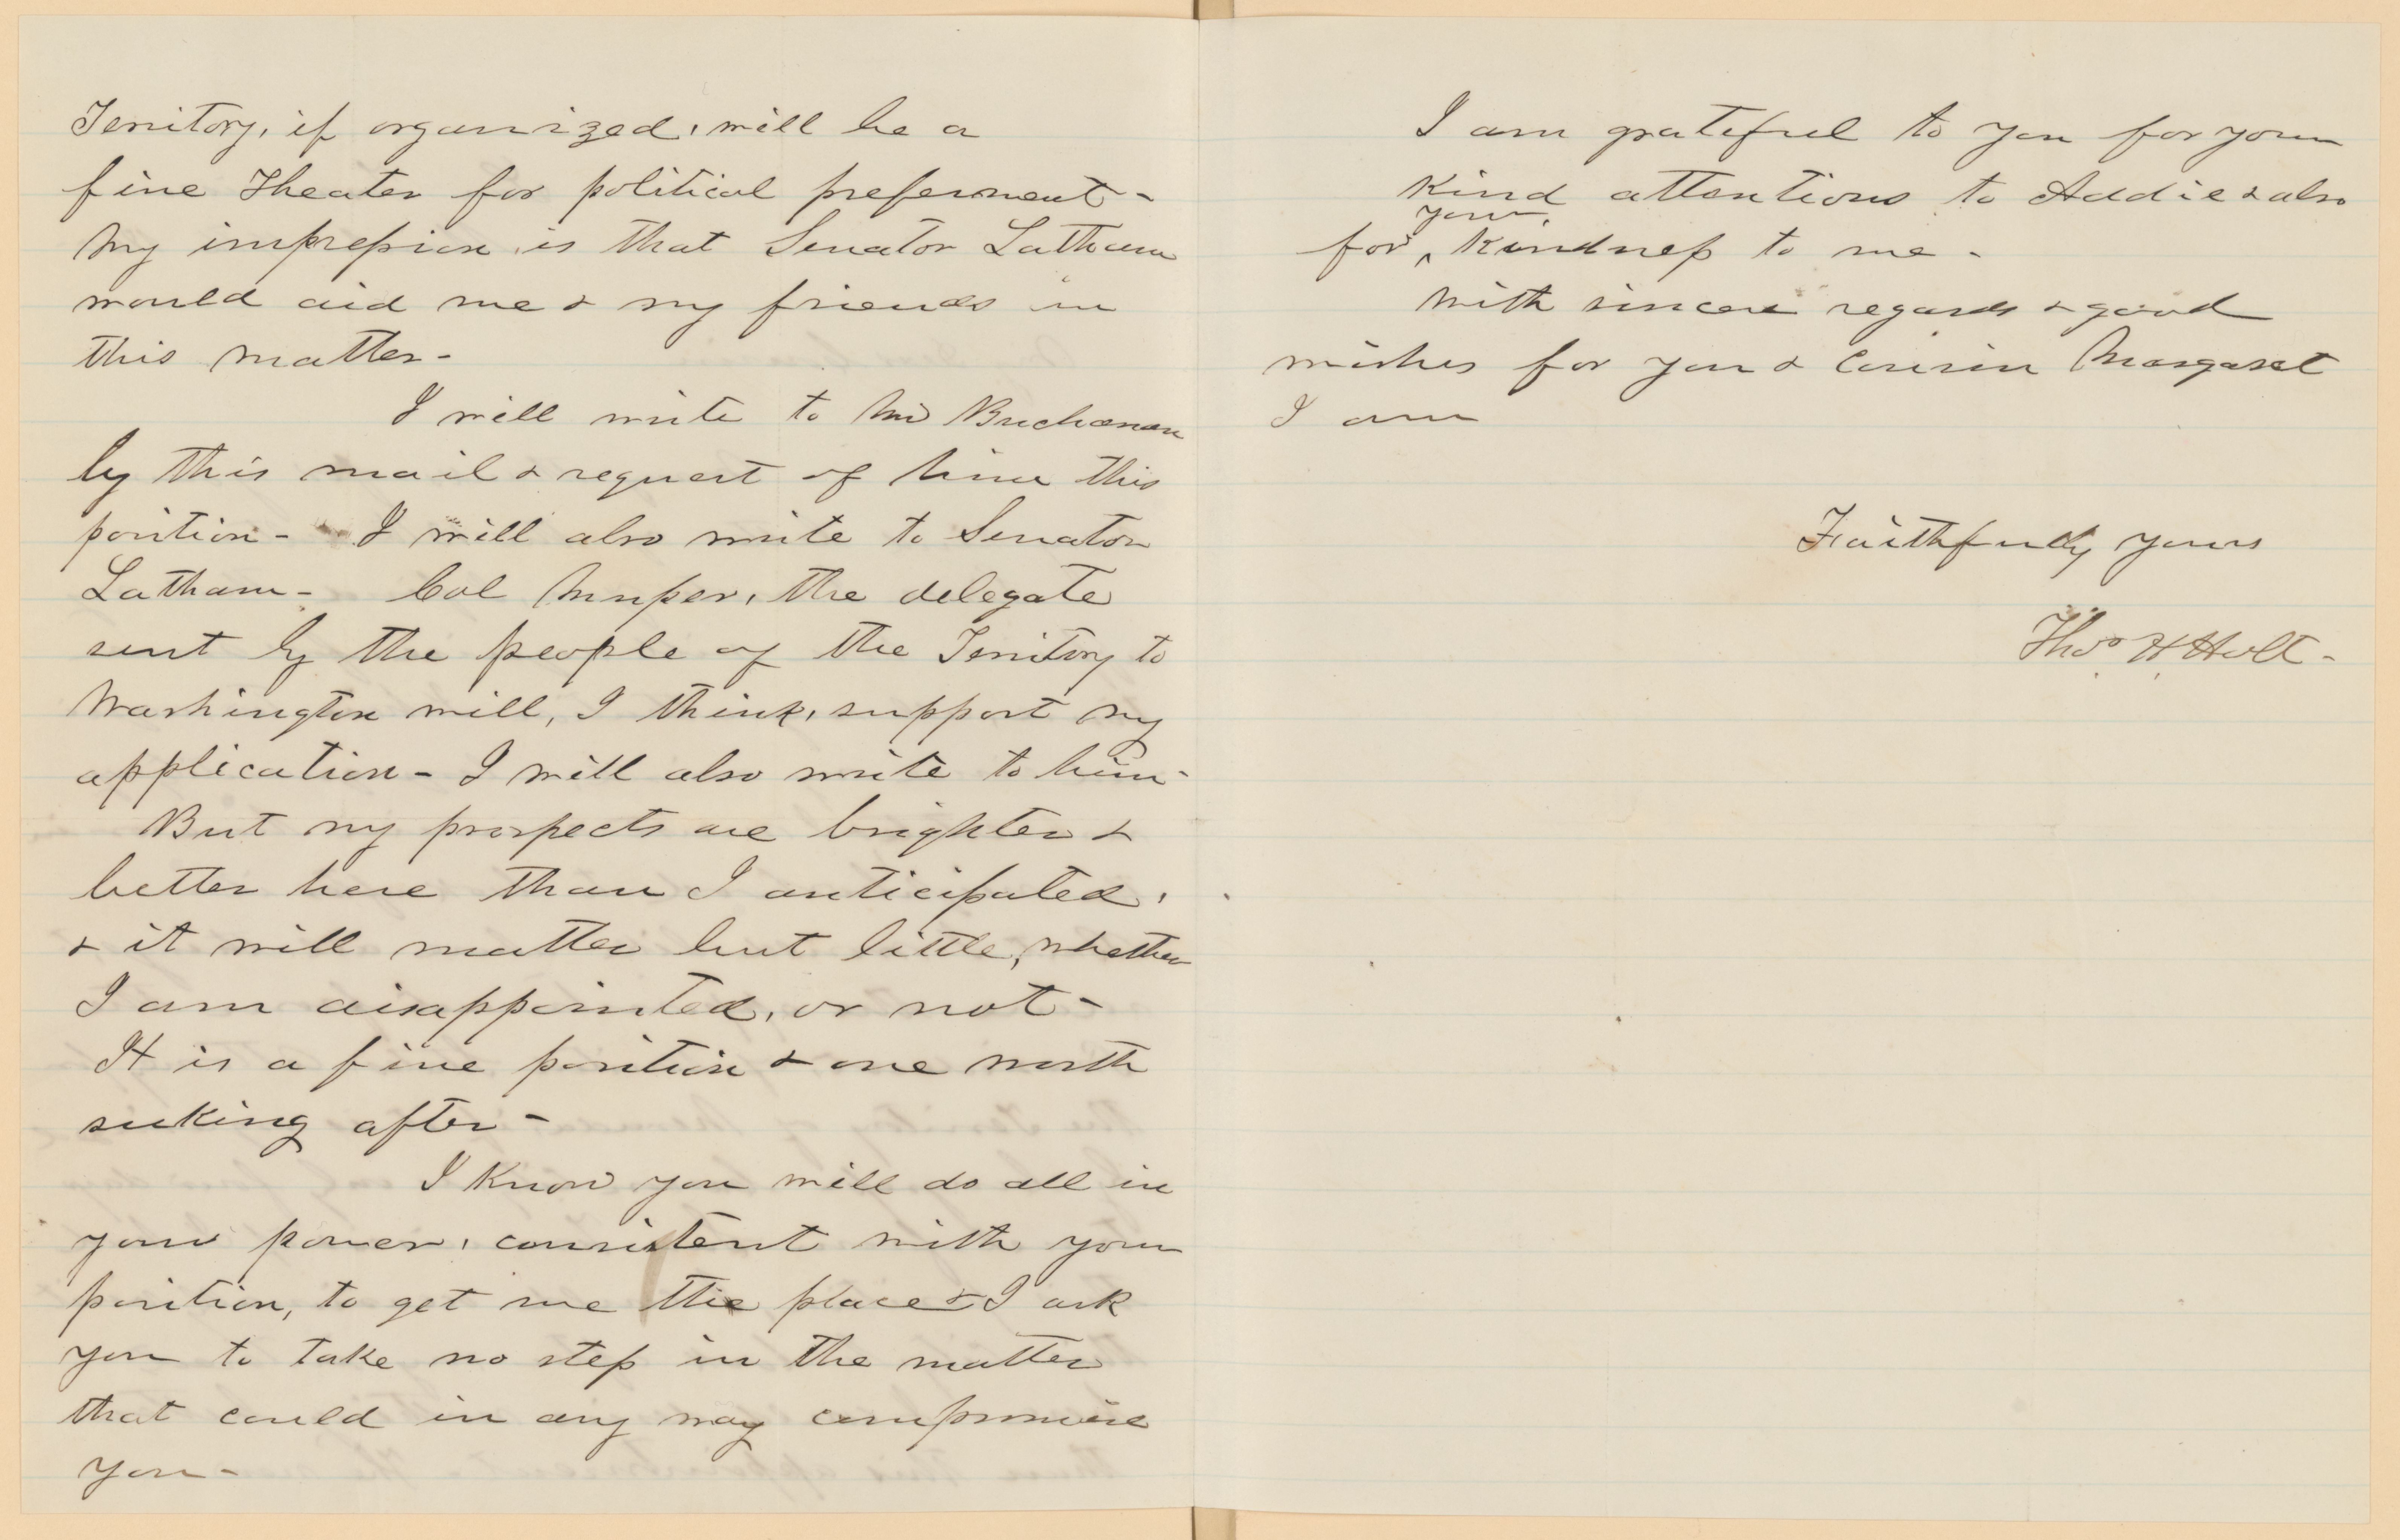 Territory, if organized, will be a
fine Theater for political preferment -
My impression is that Senator Latham
would aid me & my friends in
this matter -
I will write to Mr Buchanan
by this mail & request of him this
position - I will also write to Senator
Latham - Col Musser, the delegate
sent by the people of the Territory to
Washington will, I think, support my
application - I will also write to him -
But my prospects are brighter &
better here than I anticipated,
& it will matter but little, whether
I am disappointed, or not -
It is a fine position & one worth
seeking after -
I Know you will do all in
your power, consistent with your
position, to get me the place & I ask
you to take no step in the matter
that could in any way compromise
you -
I am grateful to you for your
Kind attentions to Addie & also
your
for ^ Kindness to me -
With sincere regards & good
wishes for you & Cousin Margaret
I am
Faithfully yours
Thos H Holt -